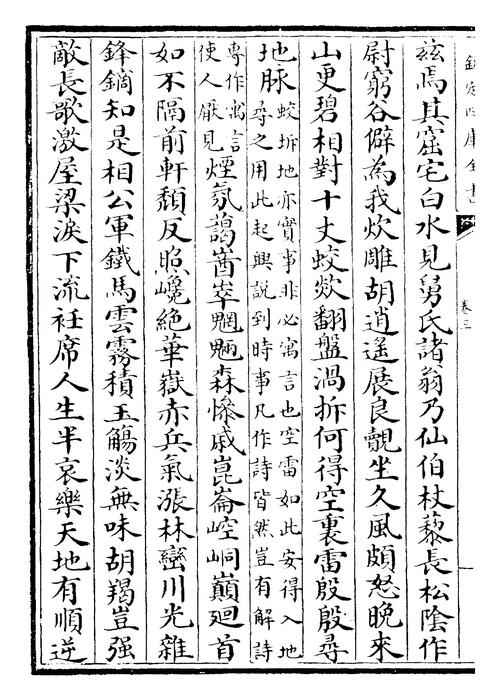 欽定四庫全書
卷三
茲焉其窟宅白水見舅氏諸翁乃仙伯杖藜長松陰作
尉窮谷僻為我炊雕胡逍遙展良覿坐久風頗怒晚來
山更碧相對十丈蛟欻翻盤渦拆何得空裏雷殷殷尋
地脉
蛟拆地亦實事非必寓言也空雷如此安得入地
尋之用此起興說到時事凡作詩皆然豈有解詩
專作寓言
使人厭見
煙氛藹崷崒魍魎森慘戚崑崙崆峒巔廻首
如不隔前軒頹反照巉絕華嶽赤兵氣漲林巒川光雜
鋒鏑知是相公軍鐵馬雲霧積玉觴淡無味胡羯豈强
敵長歌激屋梁淚下流衽席人生半哀樂天地有順逆